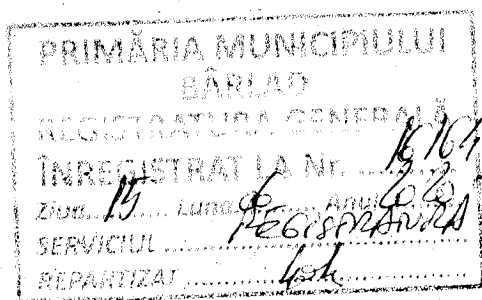 PRIMĂRIA MUNICIPIULUI
BÂRLAD
REGISTRATURA GENERALĂ
ÎNREGISTRAT LA Nr. 16164
Ziua..15.. Luna..6.. Anul..2020
SERVICIUL ..REGISTRATURA
REPARTIZAT ..........